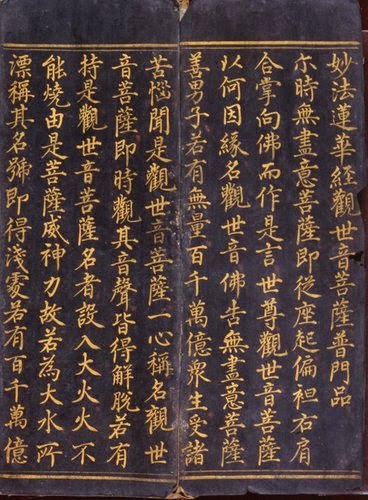 妙法蓮華經觀世音菩薩普門品
尒時無盡意菩薩即從座起偏袒右肩
合掌向佛而作是言世尊觀世音菩薩
以何因緣名觀世音佛告無盡意菩薩
善男子若有無量百千萬億衆生受諸
苦惱聞是觀世音菩薩一心稱名觀世
音菩薩即時觀其音聲皆得解脫若有
持是觀世音菩薩名者設入大火火不
能燒由是菩薩威神力故若為大水所
漂稱其名號即得淺處若有百千萬億